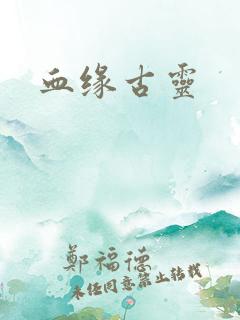 血缘古靈
鄭福德
未经同意禁止转载